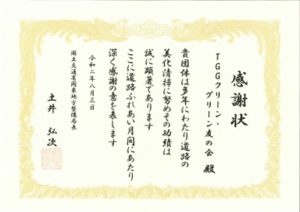 感謝状
TGGクリーン・
グリーン友の会 殿
貴団体は多年にわたり道路の
美化清掃に努めその功績は
誠に顕著であります
ここに道路ふれあい月間にあたり
深く感謝の意を表します
令和二年八月三日
国土交通省関東地方整備局長
土井 弘次